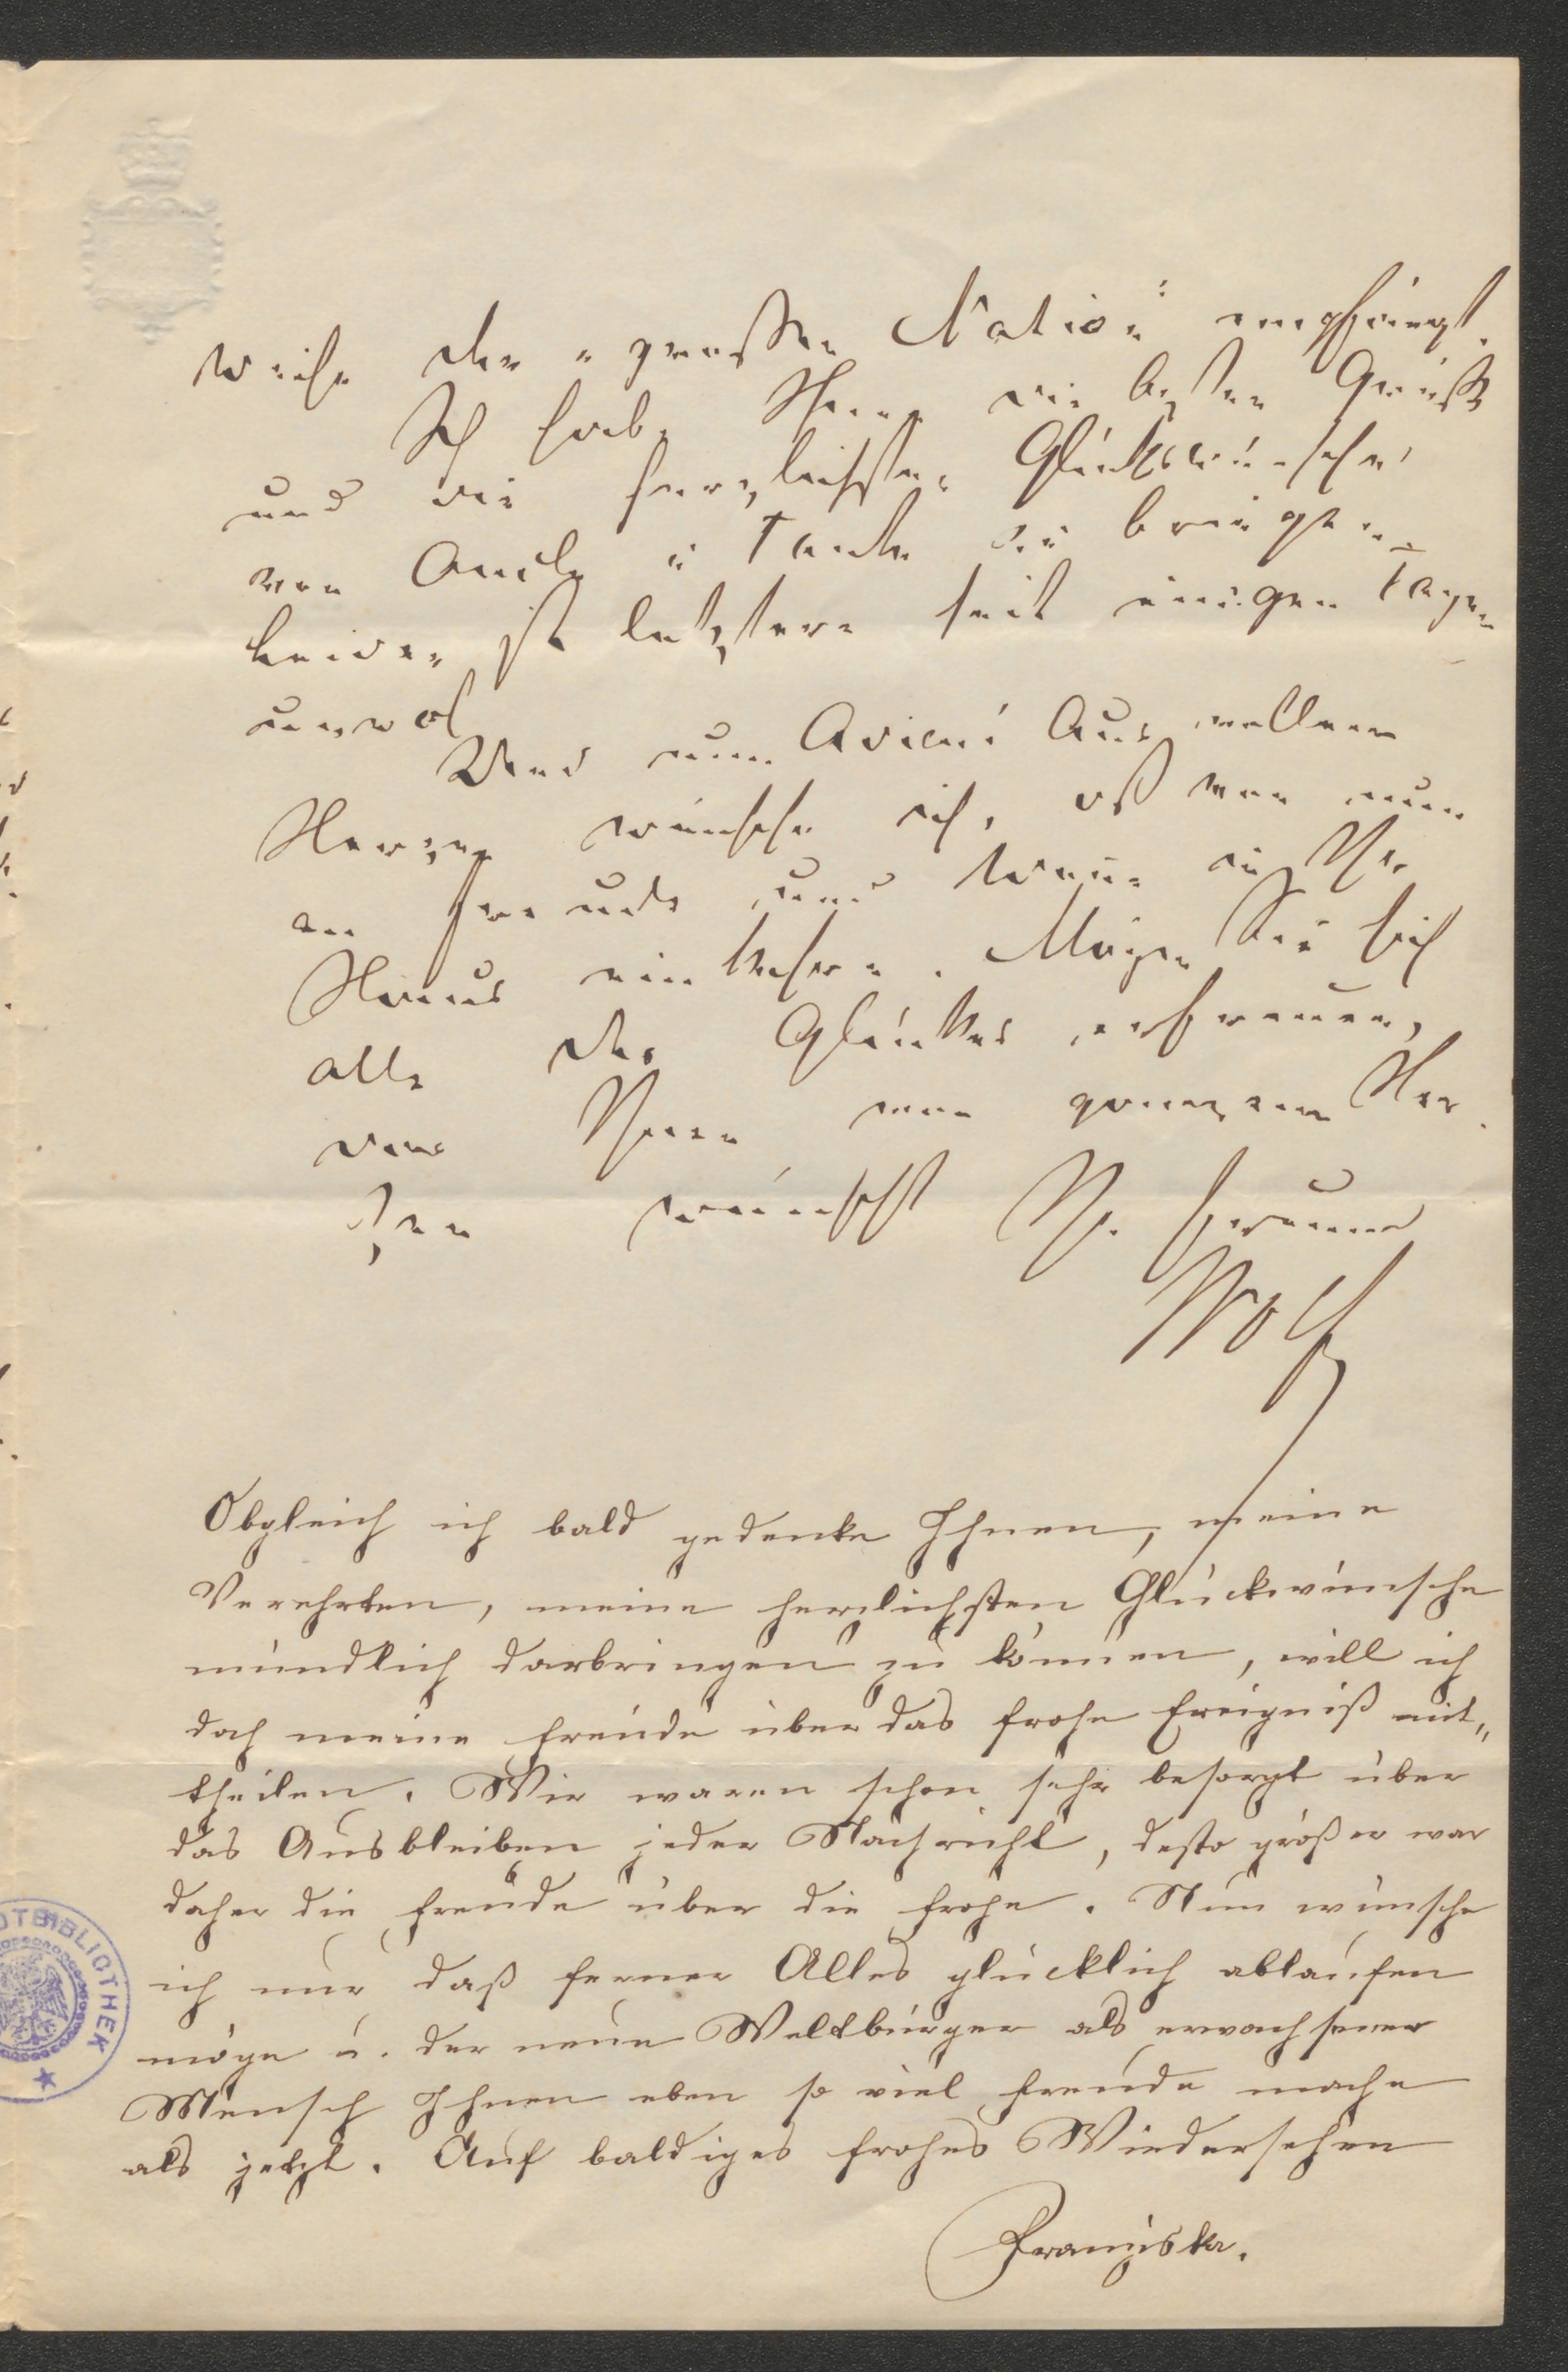 Weihe der „großen Nation“ empfängt.
Ich habe Ihnen die besten Grüße
und die herzlichsten Glückwünsche
von Onkel u Tante zu bringen.
Leider ist letztere seit einigen Tagen
unwol
Und nun Adieu! Aus vollem
Herzen wünsche ich, daß von nun
an Freude und Wonne in Ihr
Haus einkehren. Mögen Sie sich
alle des Glückes erfreuen,
das Ihnen von ganzem Her
zen wünscht Ihr Freund
Wolf
Obgleich ich bald gedenke Ihnen, meine
Verehrten, meine herzlichsten Glückwünsche
mündlich darbringen zu können, will ich
doch meine Freude über das frohe Ereigniß mit„
theilen. Wir waren schon sehr besorgt über
das Ausbleiben jeder Nachricht, desto größer war
daher die Freude über die frohe. Nun wünsche
ich nur daß ferner Alles glücklich ablaufen
möge u. der neue Weltbürger als erwachsener
Mensch Ihnen eben so viel Freude mache
als jetzt. Auf baldiges frohes Wiedersehen
Franziska.
BIBLIOTHEK